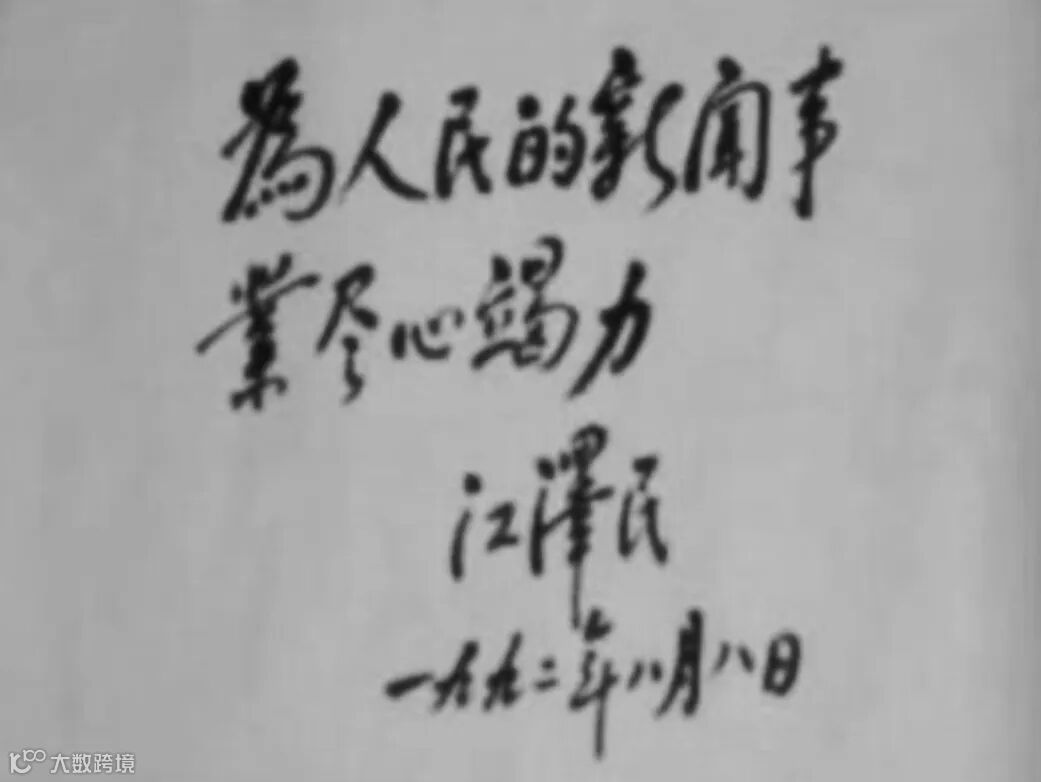 為人民的新闻事
業尽心竭力
江澤民
一九九二年八月八日
大数跨境